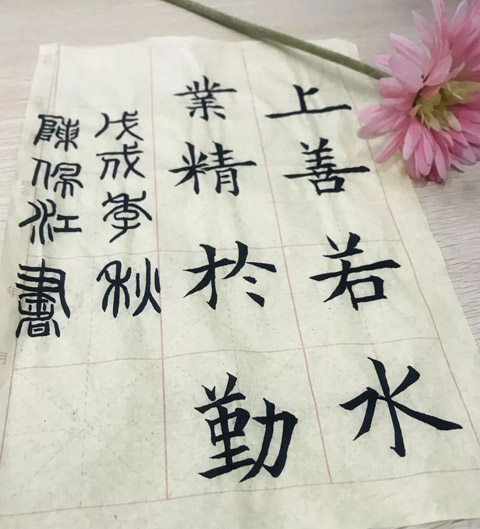 上善若水
業精於勤
戊戌季秋
陳保江書